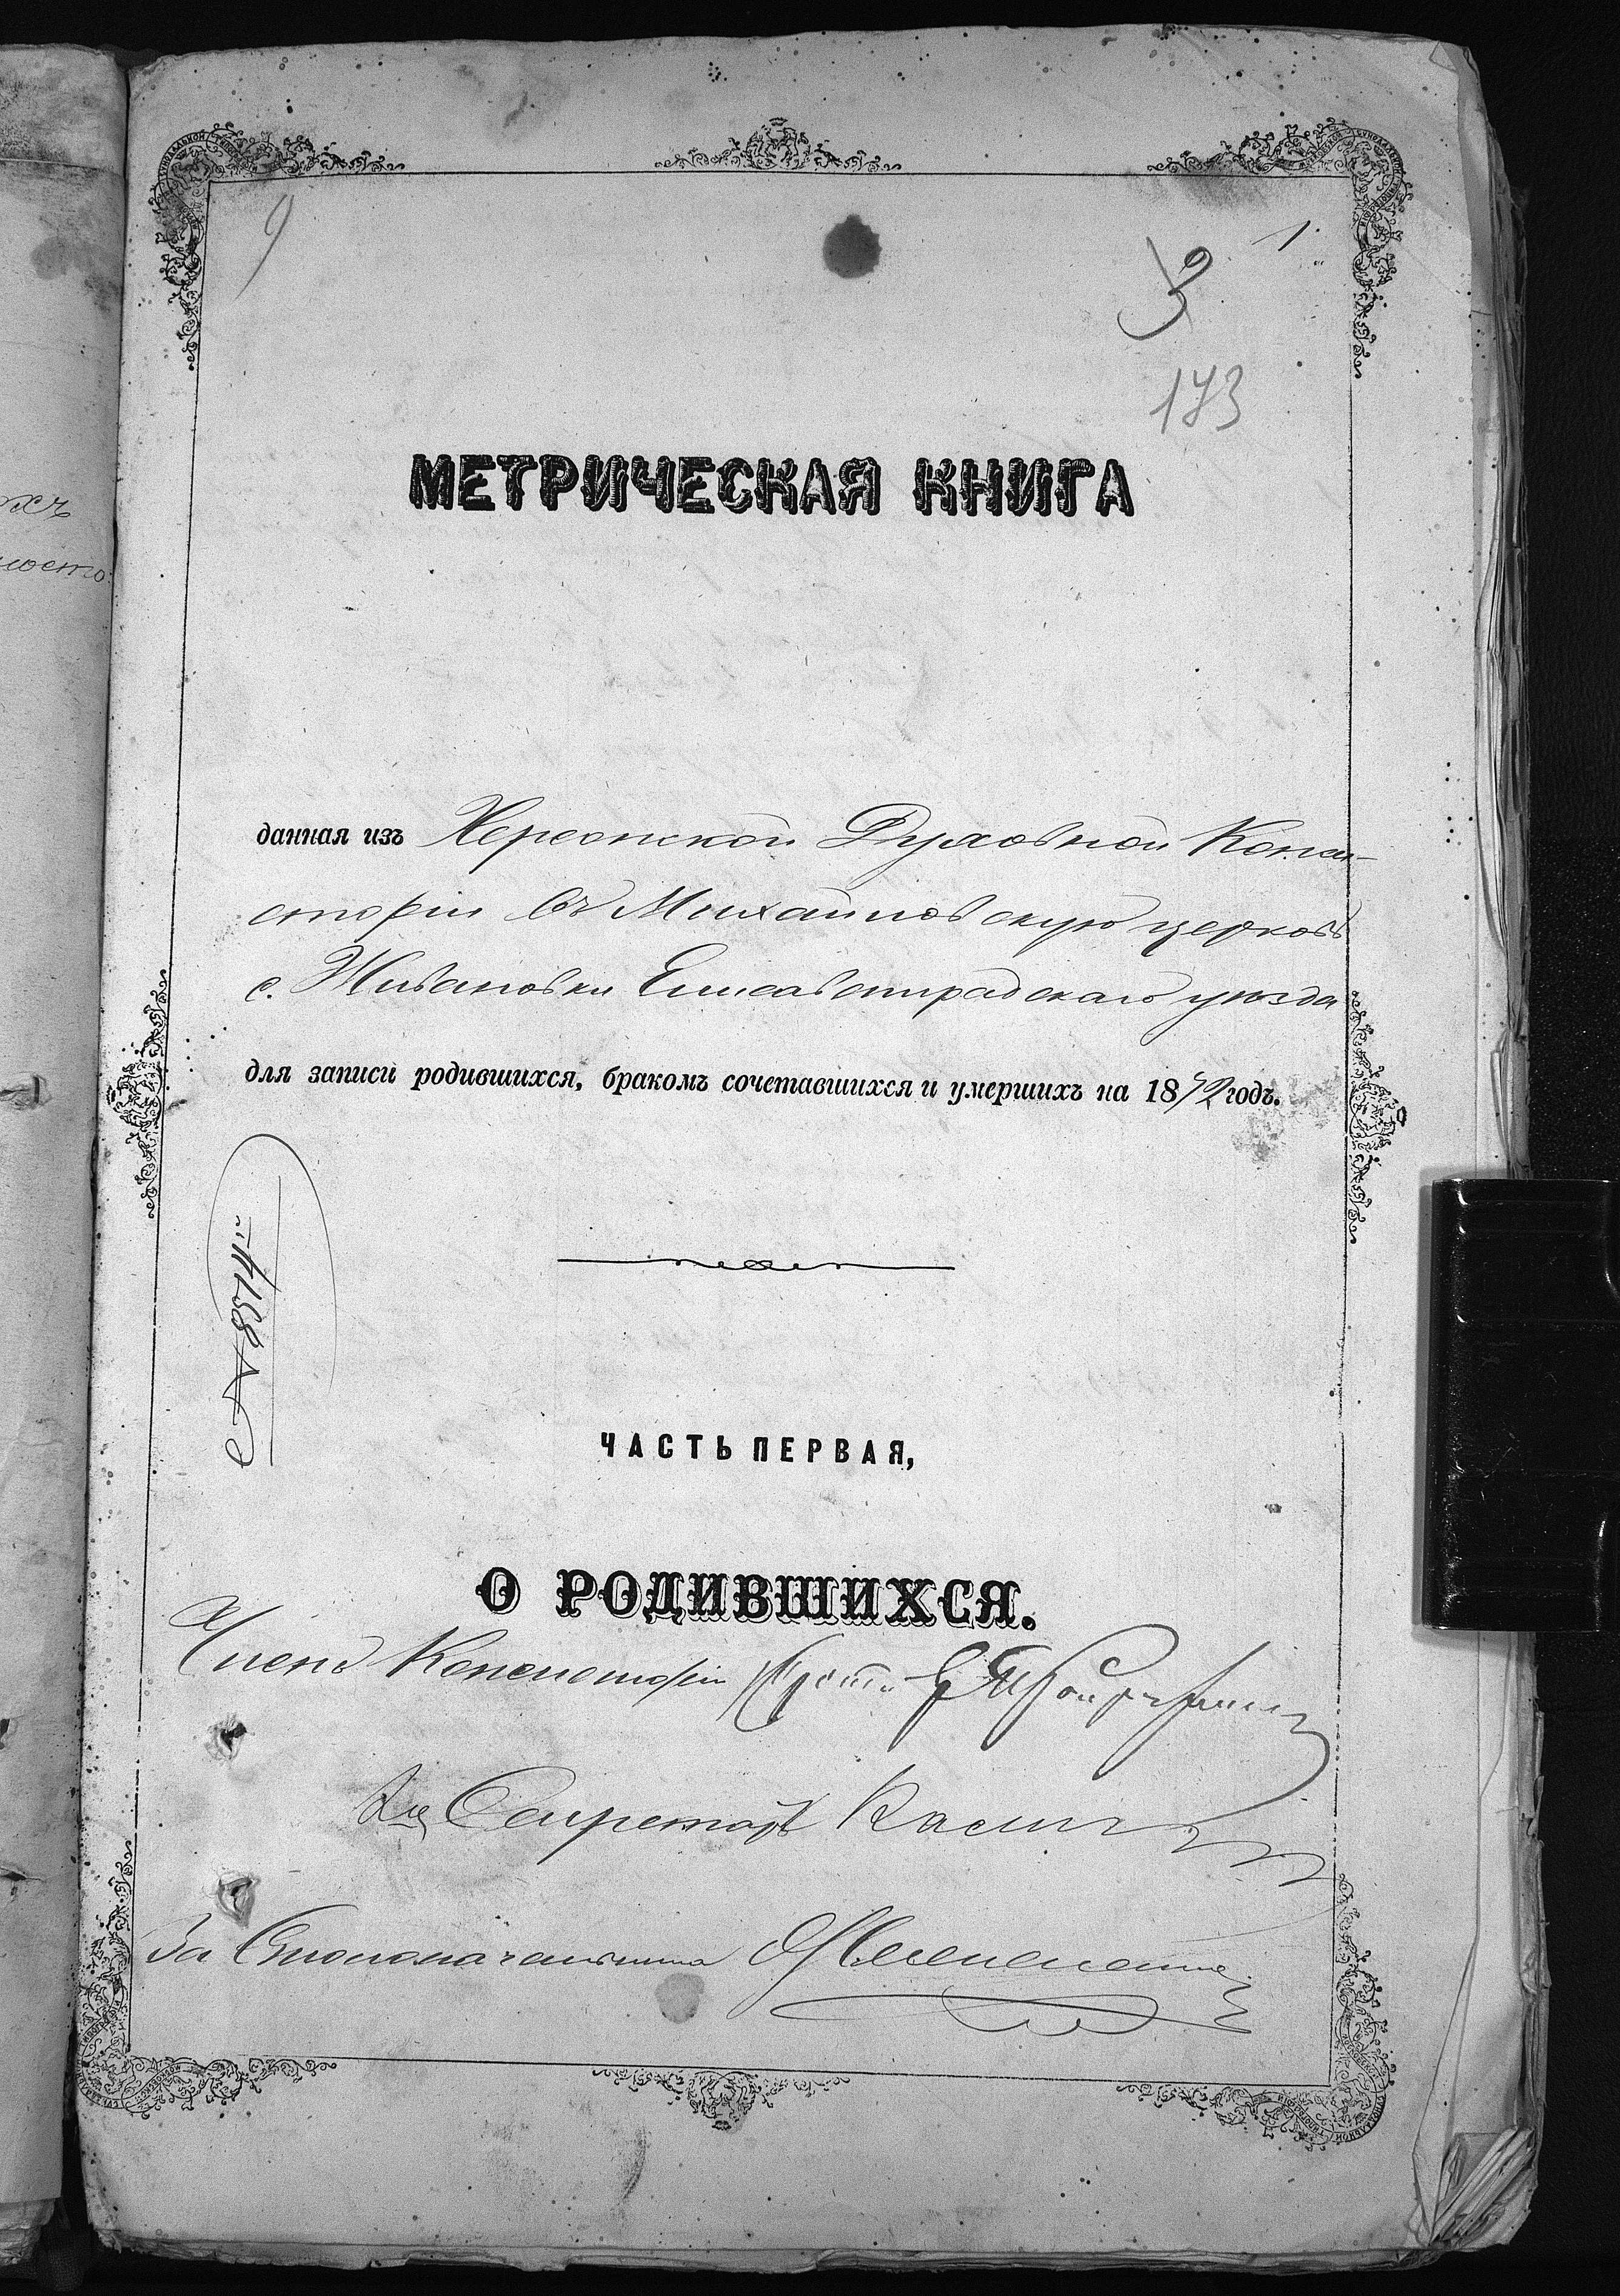 9
1.
173
МЕТРИЧЕСКАЯ КНИГА
данная изъ Херсонской Духовной Конси-
сторіи въ Михайловскую церковь
с. Живановки Елисаветградскаго уѣзда
для записи родившихся, бракомъ сочетавшихся и умершихъ на 18 годъ.
ЧАСТЬ ПЕРВАЯ,
О РОДИВШИХСЯ.
Членъ Консисторіи Прот.
Секретарь
За Столоначальника